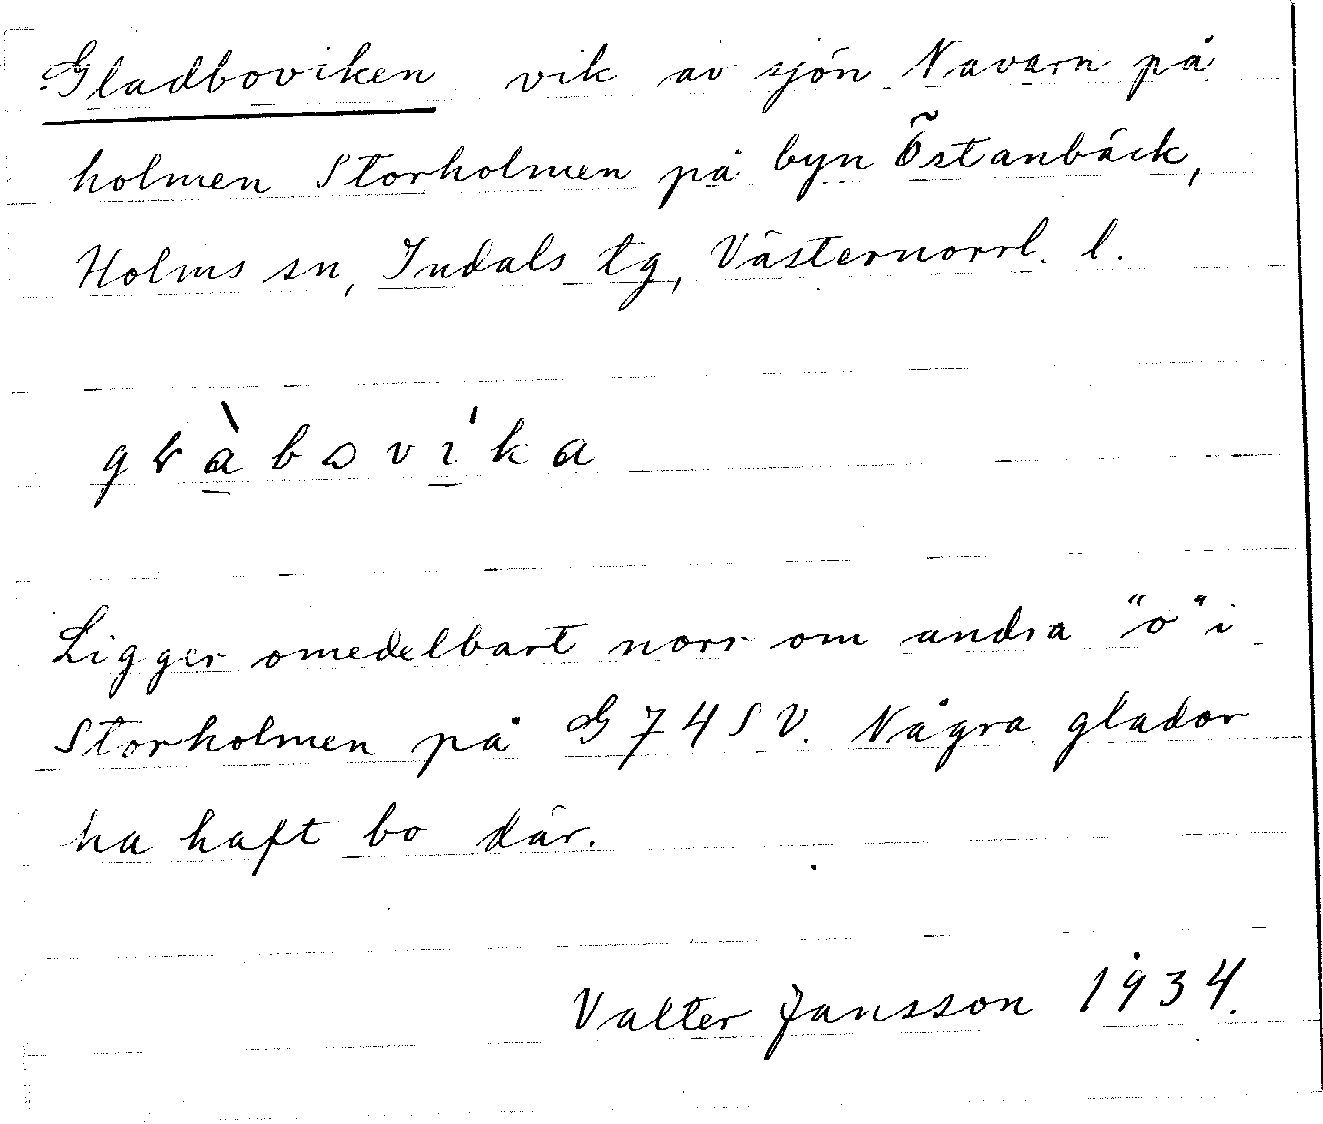 Gladboviken vik av sjön Navarn på
holmen Storholmen på byn Östanbäck,
Holms sn, Indals tg, Västernorrl. l.
Ligger omedelbart norr om andra "o" i
Storholmen på G 74 SV. Några glador
ha haft bo där.
Valter Jansson 1934.